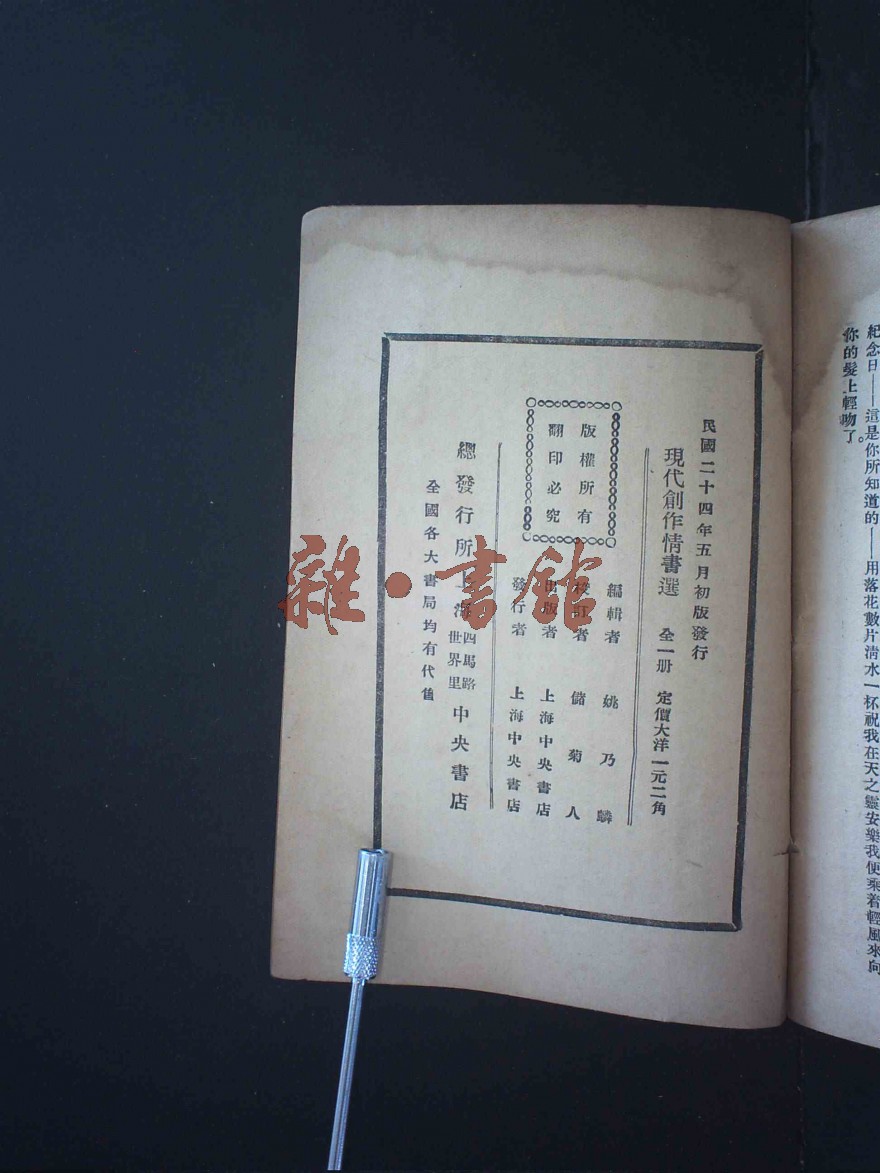 紀念日——這是你所知道的——用落花數片清水一杯祝我在天之靈安樂我便乘着輕風來向
你的髮上輕吻了。
民國二十四年五月初版發行
現代創作情書選 全一册 定價大洋一元二角
版權所有
翻印必究
編輯者 姚乃麟
校訂者 儲菊人
出版者 上海中央書店
發行者 上海中央書店
總發行所 上海四馬路世界里 中央書店
全國各大書局均有代售
雜·書館